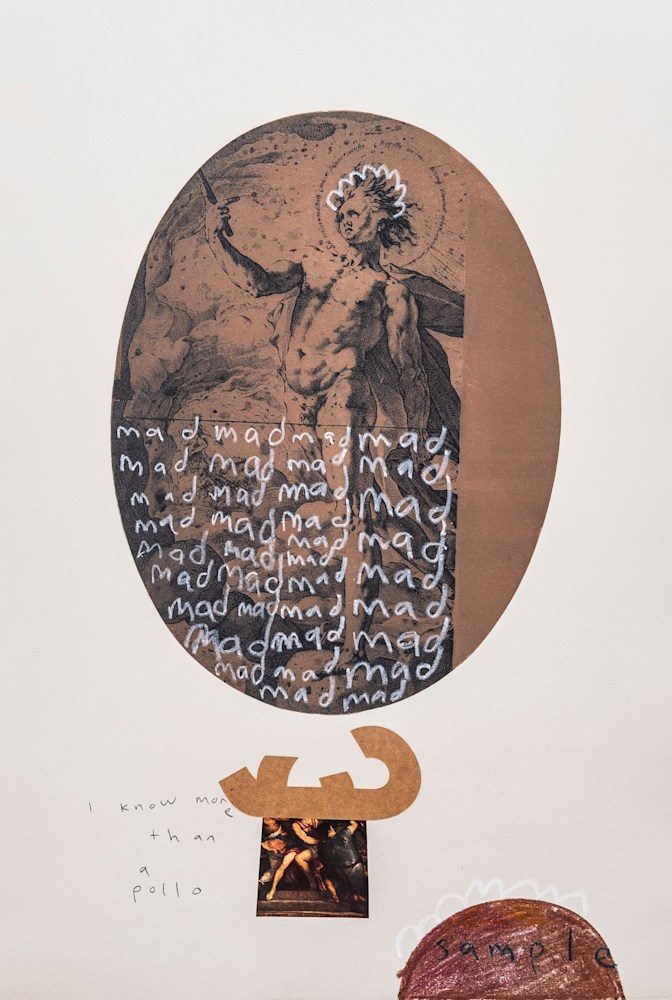 mad mad mad mad
mad mad mad mad
mad mad mad mad
mad mad mad
mad mad
mad mad mad
mad mad mad mad
mad mad mad mad
mad mad mad
mad mad mad
mad mad
I know more
than
a
pollo
sample